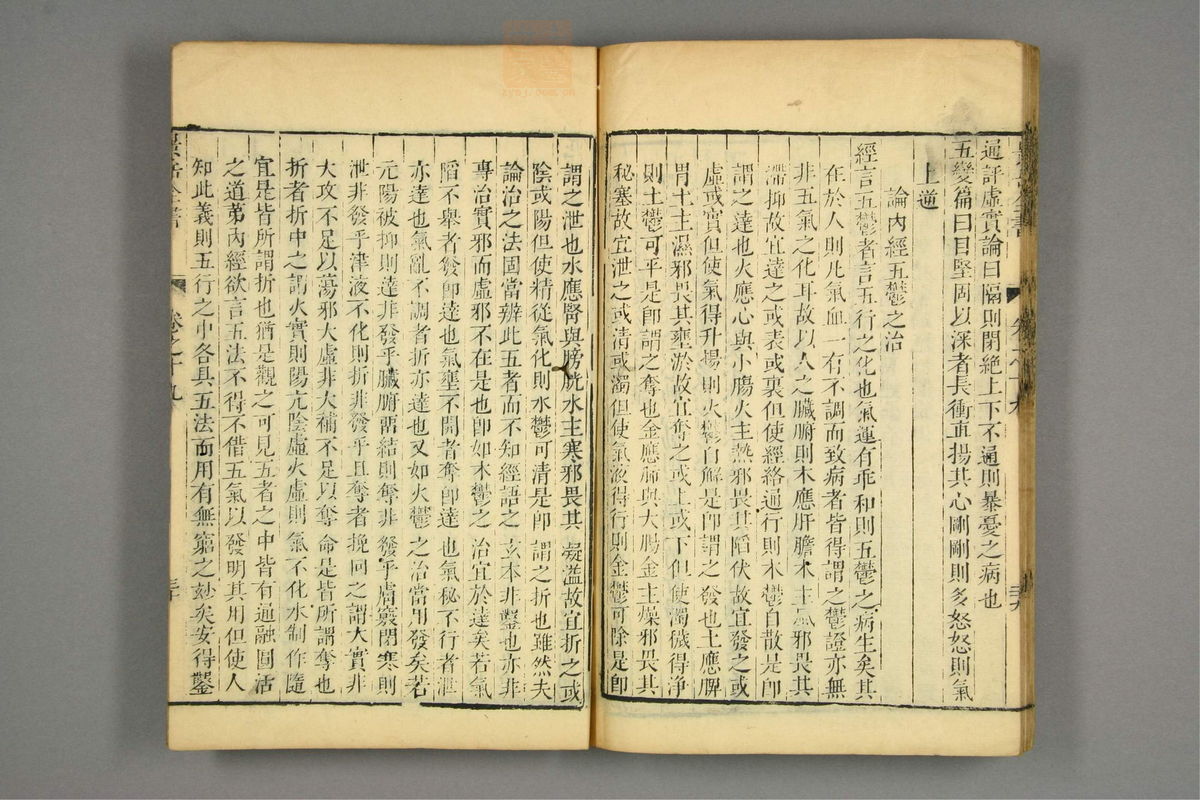 通評虛實論曰隔則閉絕上下不通則暴憂之病也
五變篇曰目堅固以深者長衝直揚其心剛剛則多怒怒則氣
上逆
論內經五鬱之治
經言五鬱者言五行之化也氣運有乖和則五鬱之病生矣其
在於人則凡氣血一有不調而致病者皆得謂之鬱證亦無
非五氣之化耳故以人之臟腑則木應肝膽木主風邪畏其
滯抑故宜達之或表或裏但使經絡通行則木鬱自散是即
謂之達也火應心與小腸火主熱邪畏其陷伏故宜發之或
虛或實但使氣得升揚則火鬱自解是即謂之發也土應脾
胃土主濕邪畏其壅淤故宜奪之或上或下但使濁穢得淨
則土鬱可平是即謂之奪也金應肺與大腸金主燥邪畏其
秘塞故宜泄之或清或濁但使氣液得行則金鬱可除是即
謂之泄也水應腎與膀胱水主寒邪畏其凝溢故宜折之或
陰或陽但使精從氣化則水鬱可清是即謂之折也雖然夫
論治之法固當辨此五者而不知經語之玄本非鑿也亦非
專治實邪而虛邪不在是也即如木鬱之治宜於達矣若氣
陷不舉者發即達也氣壅不開者奪即達也氣秘不行者泄
亦達也氣亂不調者折亦達也又如火鬱之治當用發矣若
元陽被抑則達非發乎臟腑留結則奪非發乎膚竅閉塞則
泄非發乎津液不化則折非發乎且奪者挽回之謂大實非
大攻不足以蕩邪大虛非大補不足以奪命是皆所謂奪也
折者折中之謂火實則陽亢陰虛火虛則氣不化水制作隨
宜是皆所謂折也猶是觀之可見五者之中皆有通融圓活
之道第內經欲言五法不得不借五氣以發明其用但使人
知此義則五行之中各具五法而用有無窮之妙矣安得鑿
景岳全書
卷之十九
三十
zysj.com.cn